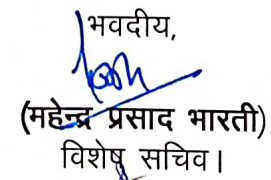 भवदीय,
(महेन्द्र प्रसाद भारती)
विशेष सचिव।